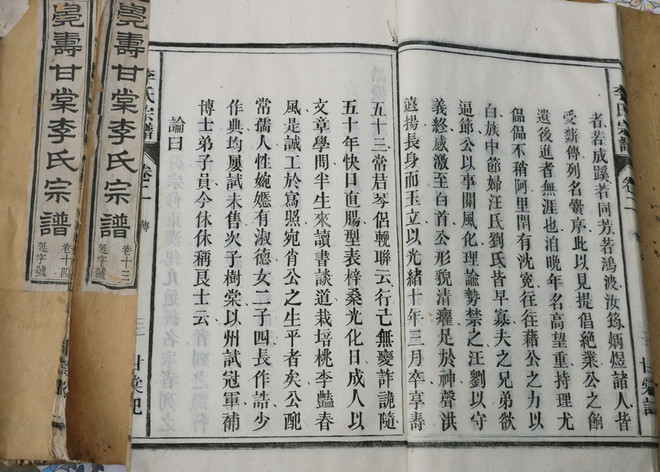 李氏宗譜
卷二
者若成蹊若同芳若鴻波汝筠炳煜諸人皆
受薪傳列名黌序此以見提倡絶業公之餉
遺後進者無涯也洎晚年名高望重持理尤
侃侃不稍阿里閈有沈寃徃徃藉公之力以
白族中節婦汪氏劉氏皆早寡夫之兄弟欲
逼節公以事關風化理論勢禁之汪劉以守
義終感激至白首公形貌清癯足於神聲洪
遠揚長身而玉立以光緒十年三月卒享壽
五十三常居岑侶輓聯云行己無變詐詭隨
五十年快口直腸型表梓桑光化日成人以
文章學問半生來讀書談道栽培桃李豔春
風是誠工於寫照宛肖公之生平者矣公配
常儒人性婉嫕有淑德女二子四長作誥少
作典均屢試未售次子樹棠以州試冠軍補
博士弟子員今休休稱艮士云
論曰
李氏宗譜
卷二
傳
三
甘棠記
亳壽甘棠李氏宗譜
卷十三
字號
亳壽甘棠李氏宗譜
卷十四
字號